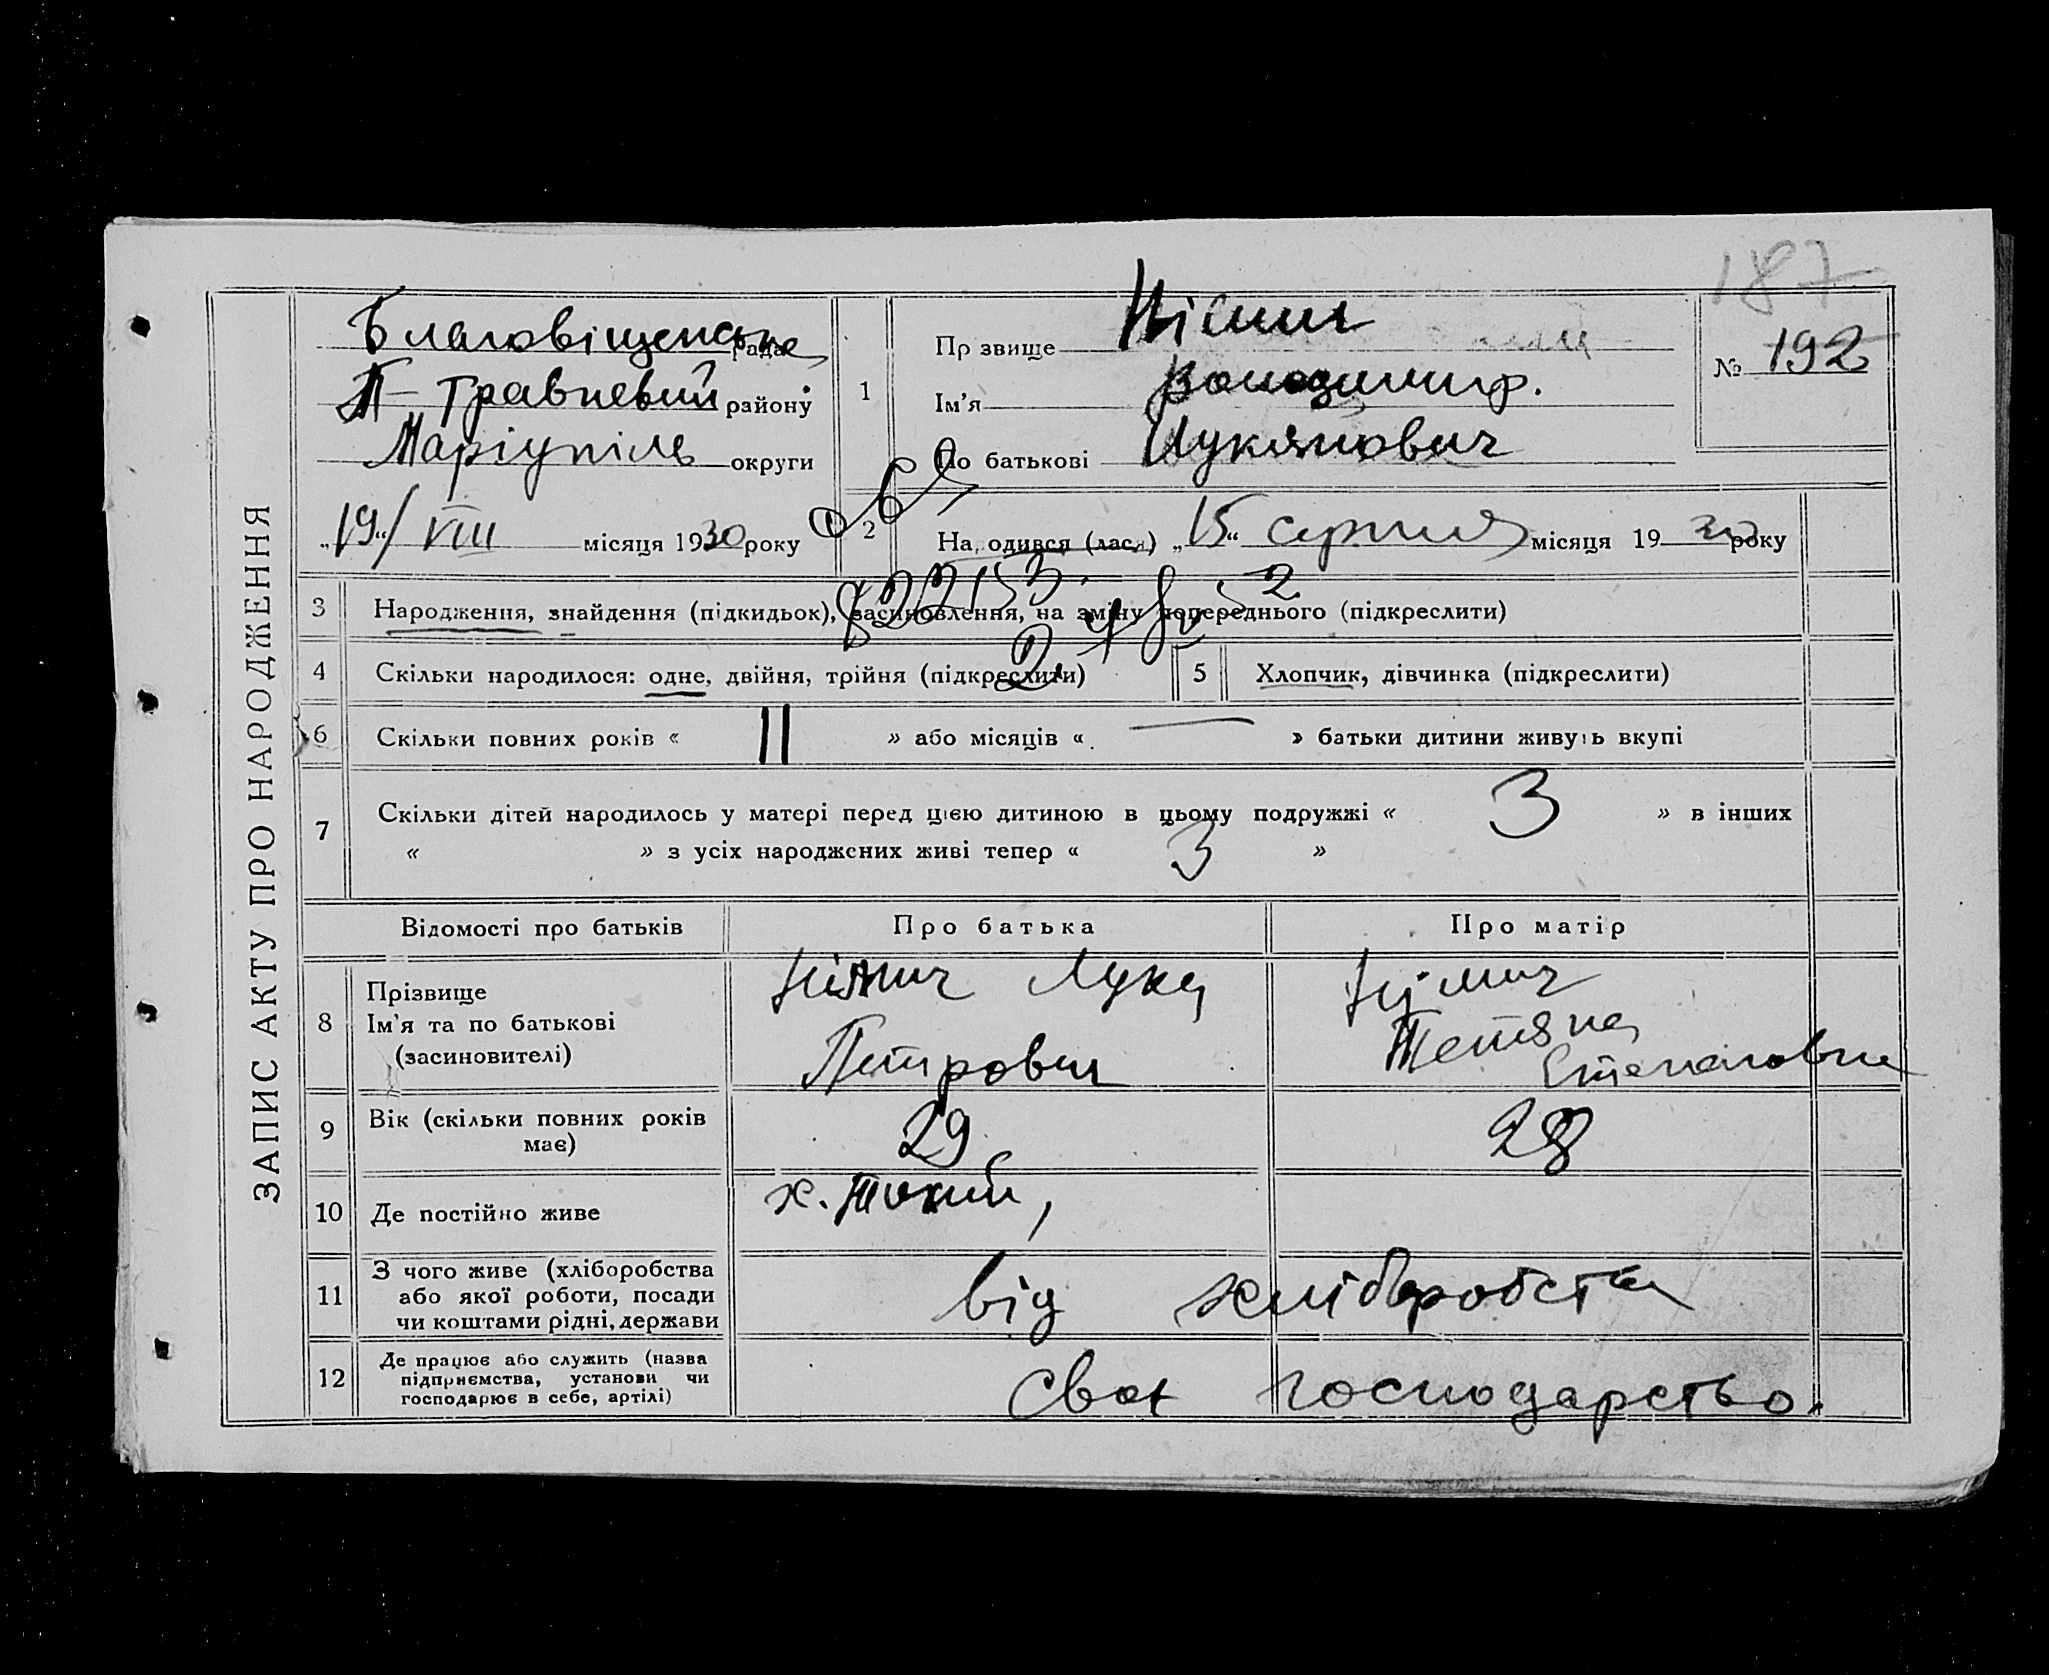 187
ЗАПИС АКТУ ПРО НАРОДЖЕННЯ
Благовіщенська рада
П-Травневий району
Маріупіль округи
„19“/VIII місяця 1930 року
1
Пр звище Німич
Ім'я Володимир.
По батькові Лукянович
№ 192
2 На одився (лася) „15“ серпня місяця 1930 року
3 Народження, знайдення (підкидьок), засиновлення, на зміну попереднього (підкреслити)
4 Скільки народилося: одне, двійня, трійня (підкреслити)
5 Хлопчик, дівчинка (підкреслити)
6 Скільки повних років « 11 » або місяців « — » батьки дитини живуть вкупі
7 Скільки дітей народилось у матері перед цією дитиною в цьому подружжі « 3 » в інших
« » з усіх народжених живі тепер « 3 »
Відомості про батьків Про батька Про матір
8 Прізвище
Ім'я та по батькові
(засиновителі)
Німич Лука
Петрович
Німич
Тетяна
Степановна
9 Вік (скільки повних років
має)
29 28
10 Де постійно живе х.
11 З чого живе (хліборобства
або якої роботи, посади
чи коштами рідні, держави
від хліборобства
12 Де працює або служить (назва
підприємства, установи чи
господарює в себе, артілі)
своє господарство.